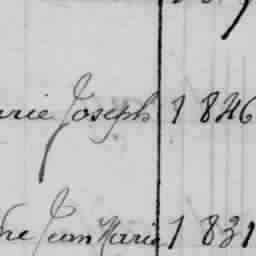 rie Joseph 1846
he Jean Marie 1831